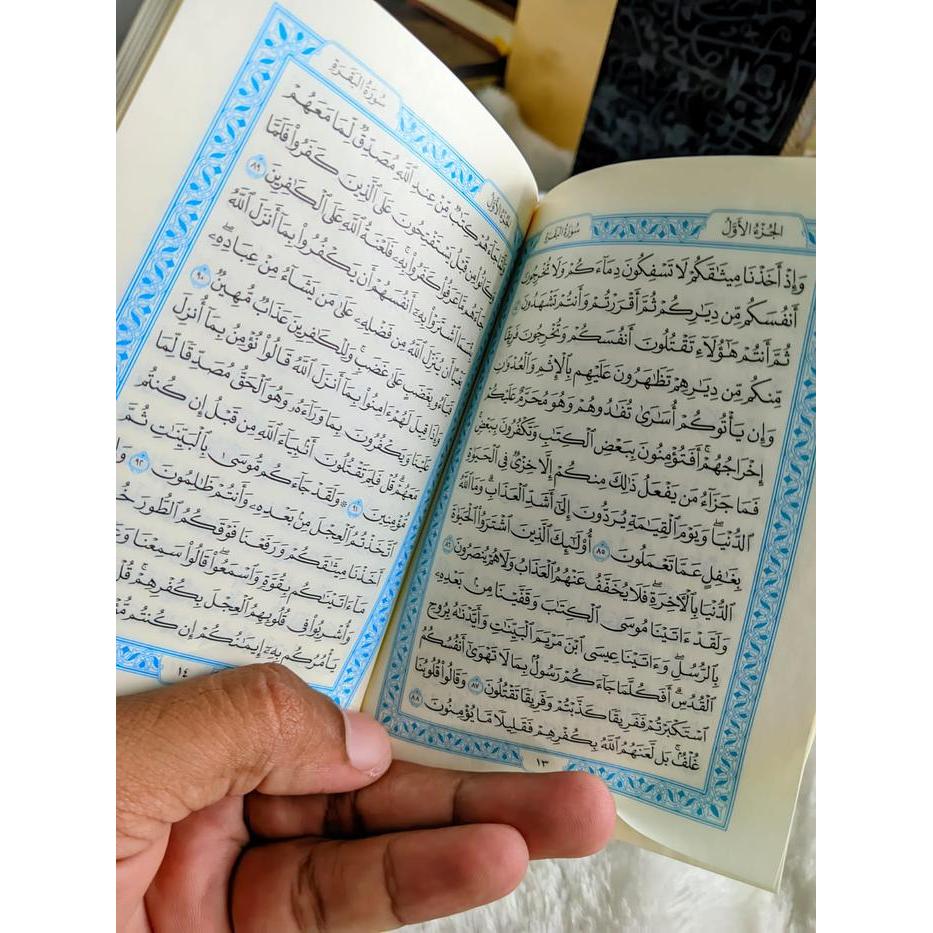 الجُزْءُ الأَوَّلُ
سُورَةُ البَقَرَةِ
وَإِذْ أَخَذْنَا مِيثَٰقَكُمْ لَا تَسْفِكُونَ دِمَآءَكُمْ وَلَا تُخْرِجُونَ
أَنفُسَكُم مِّن دِيَٰرِكُمْ ثُمَّ أَقْرَرْتُمْ وَأَنتُمْ تَشْهَدُونَ
ثُمَّ أَنتُمْ هَٰٓؤُلَآءِ تَقْتُلُونَ أَنفُسَكُمْ وَتُخْرِجُونَ فَرِيقًا
مِّنكُم مِّن دِيَٰرِهِمْ تَظَٰهَرُونَ عَلَيْهِم بِٱلْإِثْمِ وَٱلْعُدْوَٰنِ
وَإِن يَأْتُوكُمْ أُسَٰرَىٰ تُفَٰدُوهُمْ وَهُوَ مُحَرَّمٌ عَلَيْكُمْ
إِخْرَاجُهُمْ ۚ أَفَتُؤْمِنُونَ بِبَعْضِ ٱلْكِتَٰبِ وَتَكْفُرُونَ بِبَعْضٍ
فَمَا جَزَآءُ مَن يَفْعَلُ ذَٰلِكَ مِنكُمْ إِلَّا خِزْىٌ فِى ٱلْحَيَوٰةِ
ٱلدُّنْيَا ۖ وَيَوْمَ ٱلْقِيَٰمَةِ يُرَدُّونَ إِلَىٰٓ أَشَدِّ ٱلْعَذَابِ ۗ وَمَا ٱللَّهُ
بِغَٰفِلٍ عَمَّا تَعْمَلُونَ ٨٥ أُو۟لَٰٓئِكَ ٱلَّذِينَ ٱشْتَرَوُا۟ ٱلْحَيَوٰةَ
ٱلدُّنْيَا بِٱلْءَاخِرَةِ ۖ فَلَا يُخَفَّفُ عَنْهُمُ ٱلْعَذَابُ وَلَا هُمْ يُنصَرُونَ ٨٦
وَلَقَدْ ءَاتَيْنَا مُوسَى ٱلْكِتَٰبَ وَقَفَّيْنَا مِنۢ بَعْدِهِۦ
بِٱلرُّسُلِ ۖ وَءَاتَيْنَا عِيسَى ٱبْنَ مَرْيَمَ ٱلْبَيِّنَٰتِ وَأَيَّدْنَٰهُ بِرُوحِ
ٱلْقُدُسِ ۗ أَفَكُلَّمَا جَآءَكُمْ رَسُولٌۢ بِمَا لَا تَهْوَىٰٓ أَنفُسُكُمُ
ٱسْتَكْبَرْتُمْ فَفَرِيقًا كَذَّبْتُمْ وَفَرِيقًا تَقْتُلُونَ ٨٧ وَقَالُوا۟ قُلُوبُنَا
غُلْفٌۢ ۚ بَل لَّعَنَهُمُ ٱللَّهُ بِكُفْرِهِمْ فَقَلِيلًا مَّا يُؤْمِنُونَ ٨٨
١٣
الجُزْءُ الأَوَّلُ
سُورَةُ البَقَرَةِ
وَلَمَّا جَآءَهُمْ كِتَٰبٌ مِّنْ عِندِ ٱللَّهِ مُصَدِّقٌ لِّمَا مَعَهُمْ
وَكَانُوا۟ مِن قَبْلُ يَسْتَفْتِحُونَ عَلَى ٱلَّذِينَ كَفَرُوا۟ فَلَمَّا
جَآءَهُم مَّا عَرَفُوا۟ كَفَرُوا۟ بِهِۦ ۚ فَلَعْنَةُ ٱللَّهِ عَلَى ٱلْكَٰفِرِينَ ٨٩
بِئْسَمَا ٱشْتَرَوْا۟ بِهِۦٓ أَنفُسَهُمْ أَن يَكْفُرُوا۟ بِمَآ أَنزَلَ ٱللَّهُ
بَغْيًا أَن يُنَزِّلَ ٱللَّهُ مِن فَضْلِهِۦ عَلَىٰ مَن يَشَآءُ مِنْ عِبَادِهِۦ ۖ
فَبَآءُو بِغَضَبٍ عَلَىٰ غَضَبٍ ۚ وَلِلْكَٰفِرِينَ عَذَابٌ مُّهِينٌ ٩٠
وَإِذَا قِيلَ لَهُمْ ءَامِنُوا۟ بِمَآ أَنزَلَ ٱللَّهُ قَالُوا۟ نُؤْمِنُ بِمَآ أُنزِلَ
عَلَيْنَا وَيَكْفُرُونَ بِمَا وَرَآءَهُۥ وَهُوَ ٱلْحَقُّ مُصَدِّقًا لِّمَا
مَعَهُمْ ۗ قُلْ فَلِمَ تَقْتُلُونَ أَنۢبِيَآءَ ٱللَّهِ مِن قَبْلُ إِن كُنتُم
مُّؤْمِنِينَ ٩١ ۞ وَلَقَدْ جَآءَكُم مُّوسَىٰ بِٱلْبَيِّنَٰتِ ثُمَّ
ٱتَّخَذْتُمُ ٱلْعِجْلَ مِنۢ بَعْدِهِۦ وَأَنتُمْ ظَٰلِمُونَ ٩٢
أَخَذْنَا مِيثَٰقَكُمْ وَرَفَعْنَا فَوْقَكُمُ ٱلطُّورَ
مَآ ءَاتَيْنَٰكُم بِقُوَّةٍ وَٱسْمَعُوا۟ ۖ قَالُوا۟ سَمِعْنَا
وَأُشْرِبُوا۟ فِى قُلُوبِهِمُ ٱلْعِجْلَ بِكُفْرِهِمْ ۚ قُلْ
يَأْمُرُكُم بِهِۦٓ إِيمَٰنُكُمْ إِن كُنتُم
١٤